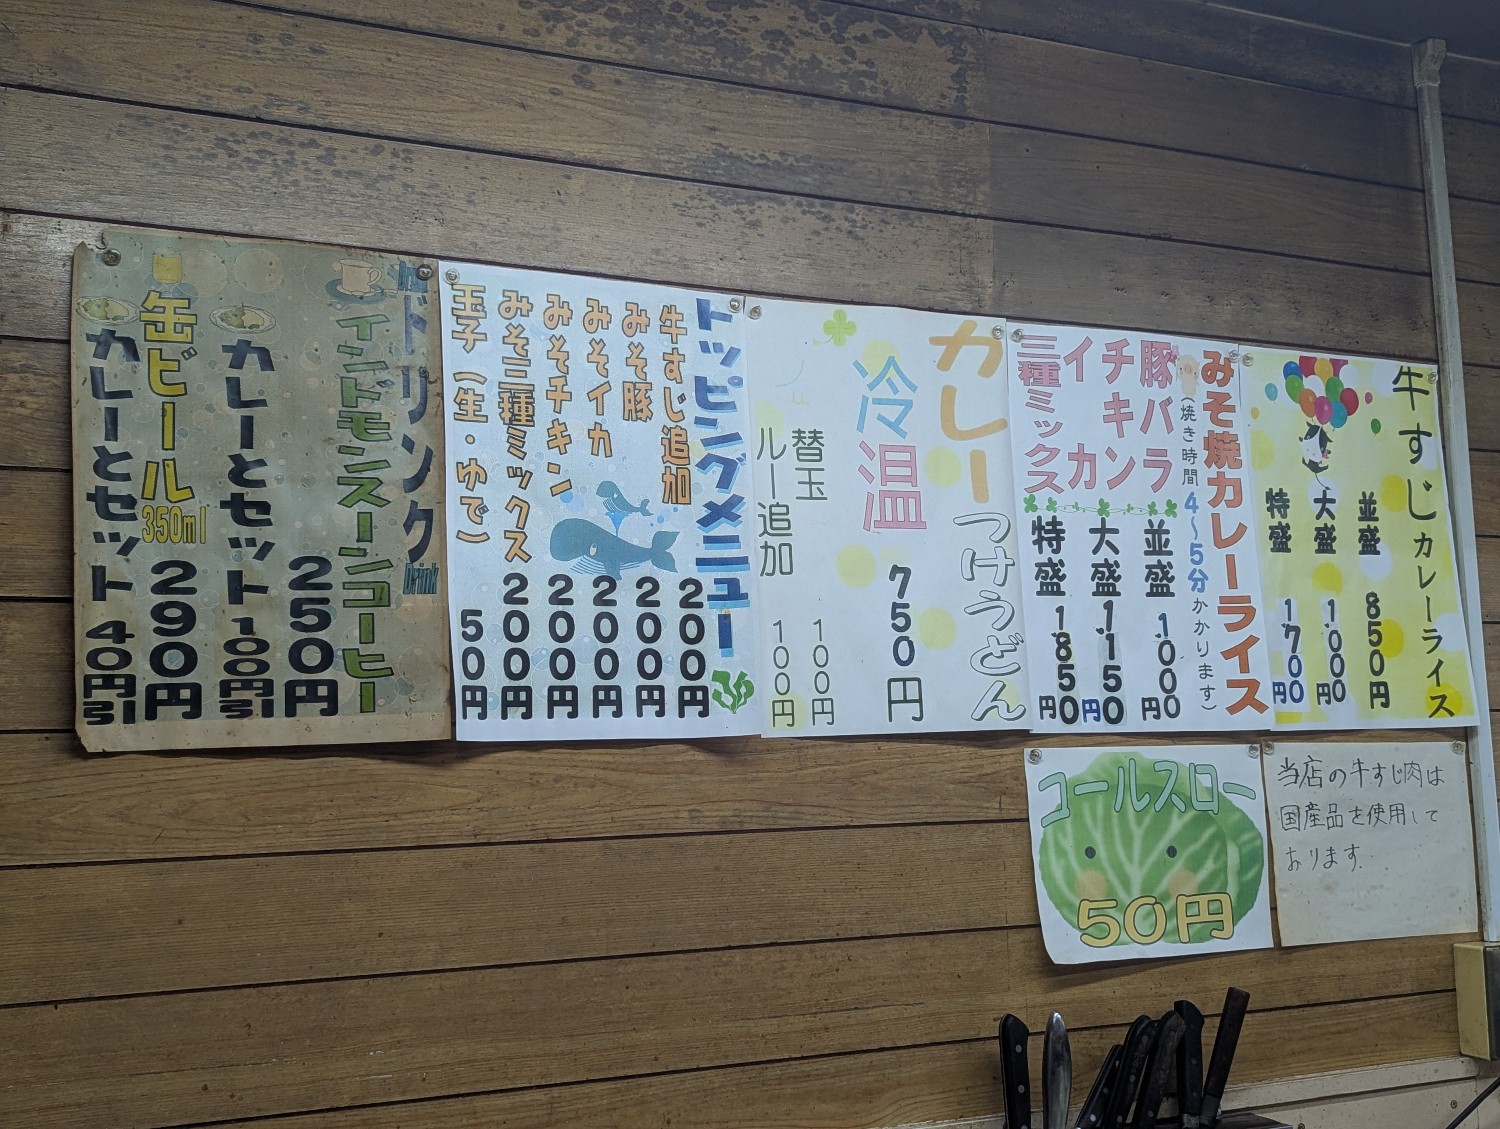 牛すじカレーライス
並盛 850円
大盛 1.000円
特盛 1.700円
みそ焼カレーライス
(焼き時間4～5分かかります)
豚バラ
チキン
イカ
三種ミックス
並盛 1.000円
大盛 1.150円
特盛 1.850円
カレーつけうどん
冷 温 750円
替玉 100円
ルー追加 100円
トッピングメニュー
牛すじ追加 200円
みそ豚 200円
みそイカ 200円
みそチキン 200円
みそ三種ミックス 200円
玉子(生・ゆで) 50円
ドリンク Drink
インドモンスーンコーヒー
250円
カレーとセット 100円引
缶ビール 350ml 290円
カレーとセット 40円引
コールスロー
50円
当店の牛すじ肉は
国産品を使用して
おります.